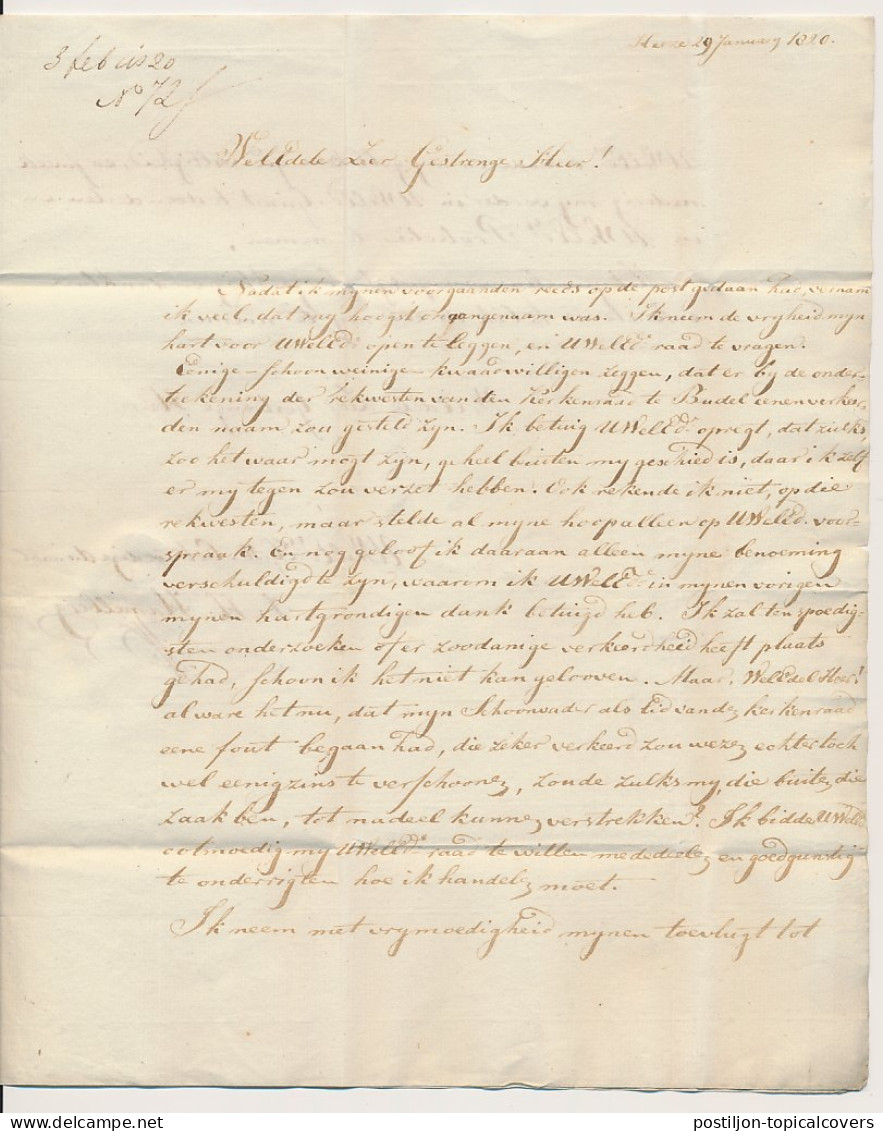 Heeze 29 January 1820.
3 feb 1820
No 72
WelEdele Zeer Gestrenge Heer!
Nadat ik mynen voorgaanden reeds op de post gedaan had, vernam
ik veel, dat my hoogst onaangenaam was. Ik neem de vryheid myn
hart voor UWelEd. open te leggen, en UWelEd. raad te vragen.
Eenige – schoon weinige – kwaadwilligen zeggen, dat er by de onder-
teekening der rekwesten van den Kerkenraad te Budel eenen verkeer-
den naam zou gesteld zyn. Ik betuig UWelEd. opregt, dat zulks,
zoo het waar mogt zyn, geheel buiten my geschied is, daar ik zelf
er my tegen zou verzet hebben. Ook rekende ik niet, op die
rekwesten, maar stelde al myne hoop alleen op UWelEd. voor-
spraak. En nog geloof ik daaraan alleen myne benoeming
verschuldigd te zyn, waarom ik UWelEd. in mynen vorigen
mynen hartgrondigen dank betuigd heb. Ik zal ten spoedig-
sten onderzoeken of er zoodanige verkeerdheid heeft plaats
gehad, schoon ik het niet kan gelooven. Maar, WelEdel Heer!
al ware het nu, dat myn Schoonvader als lid van den kerkenraad
eene fout begaan had, die zeker verkeerd zou wezen echter toch
wel eenigzins te verschoonen, zoude zulks my, die buiten die
zaak ben, tot nadeel kunnen verstrekken? Ik bidde UWelEd.
ootmoedig my UWelEd. raad te willen mededeelen en goedgunstig
te onderrigten hoe ik handelen moet.
Ik neem met vrymoedigheid mynen toevlugt tot
postiljon-topicalcovers